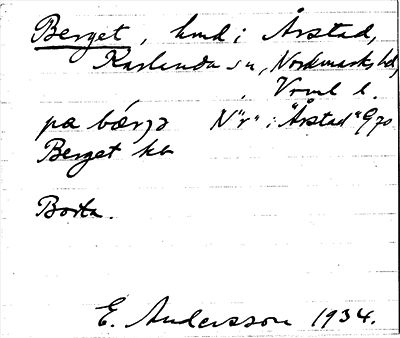 Berget, hmd i Årstad,
Karlanda sn, Nordmarks hd,
Vrml l.
pa bǽrʒə N "r" i "Årstad" G70
Berget kb
Borta.
E. Andersson 1934.